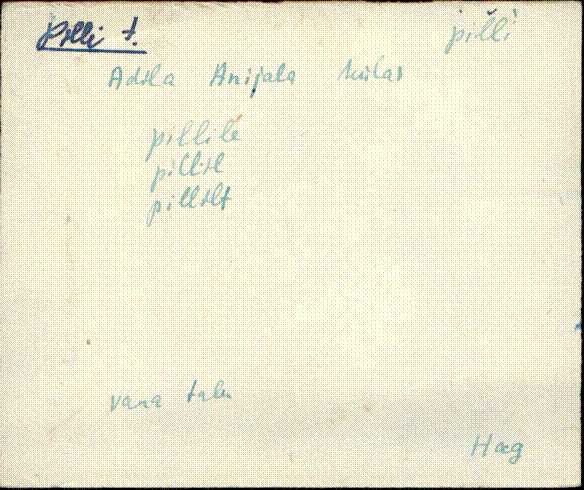 Pilli t. pil̆li
Adila Anijala külas
pillile
pillil
pillilt
vana talu
Hag